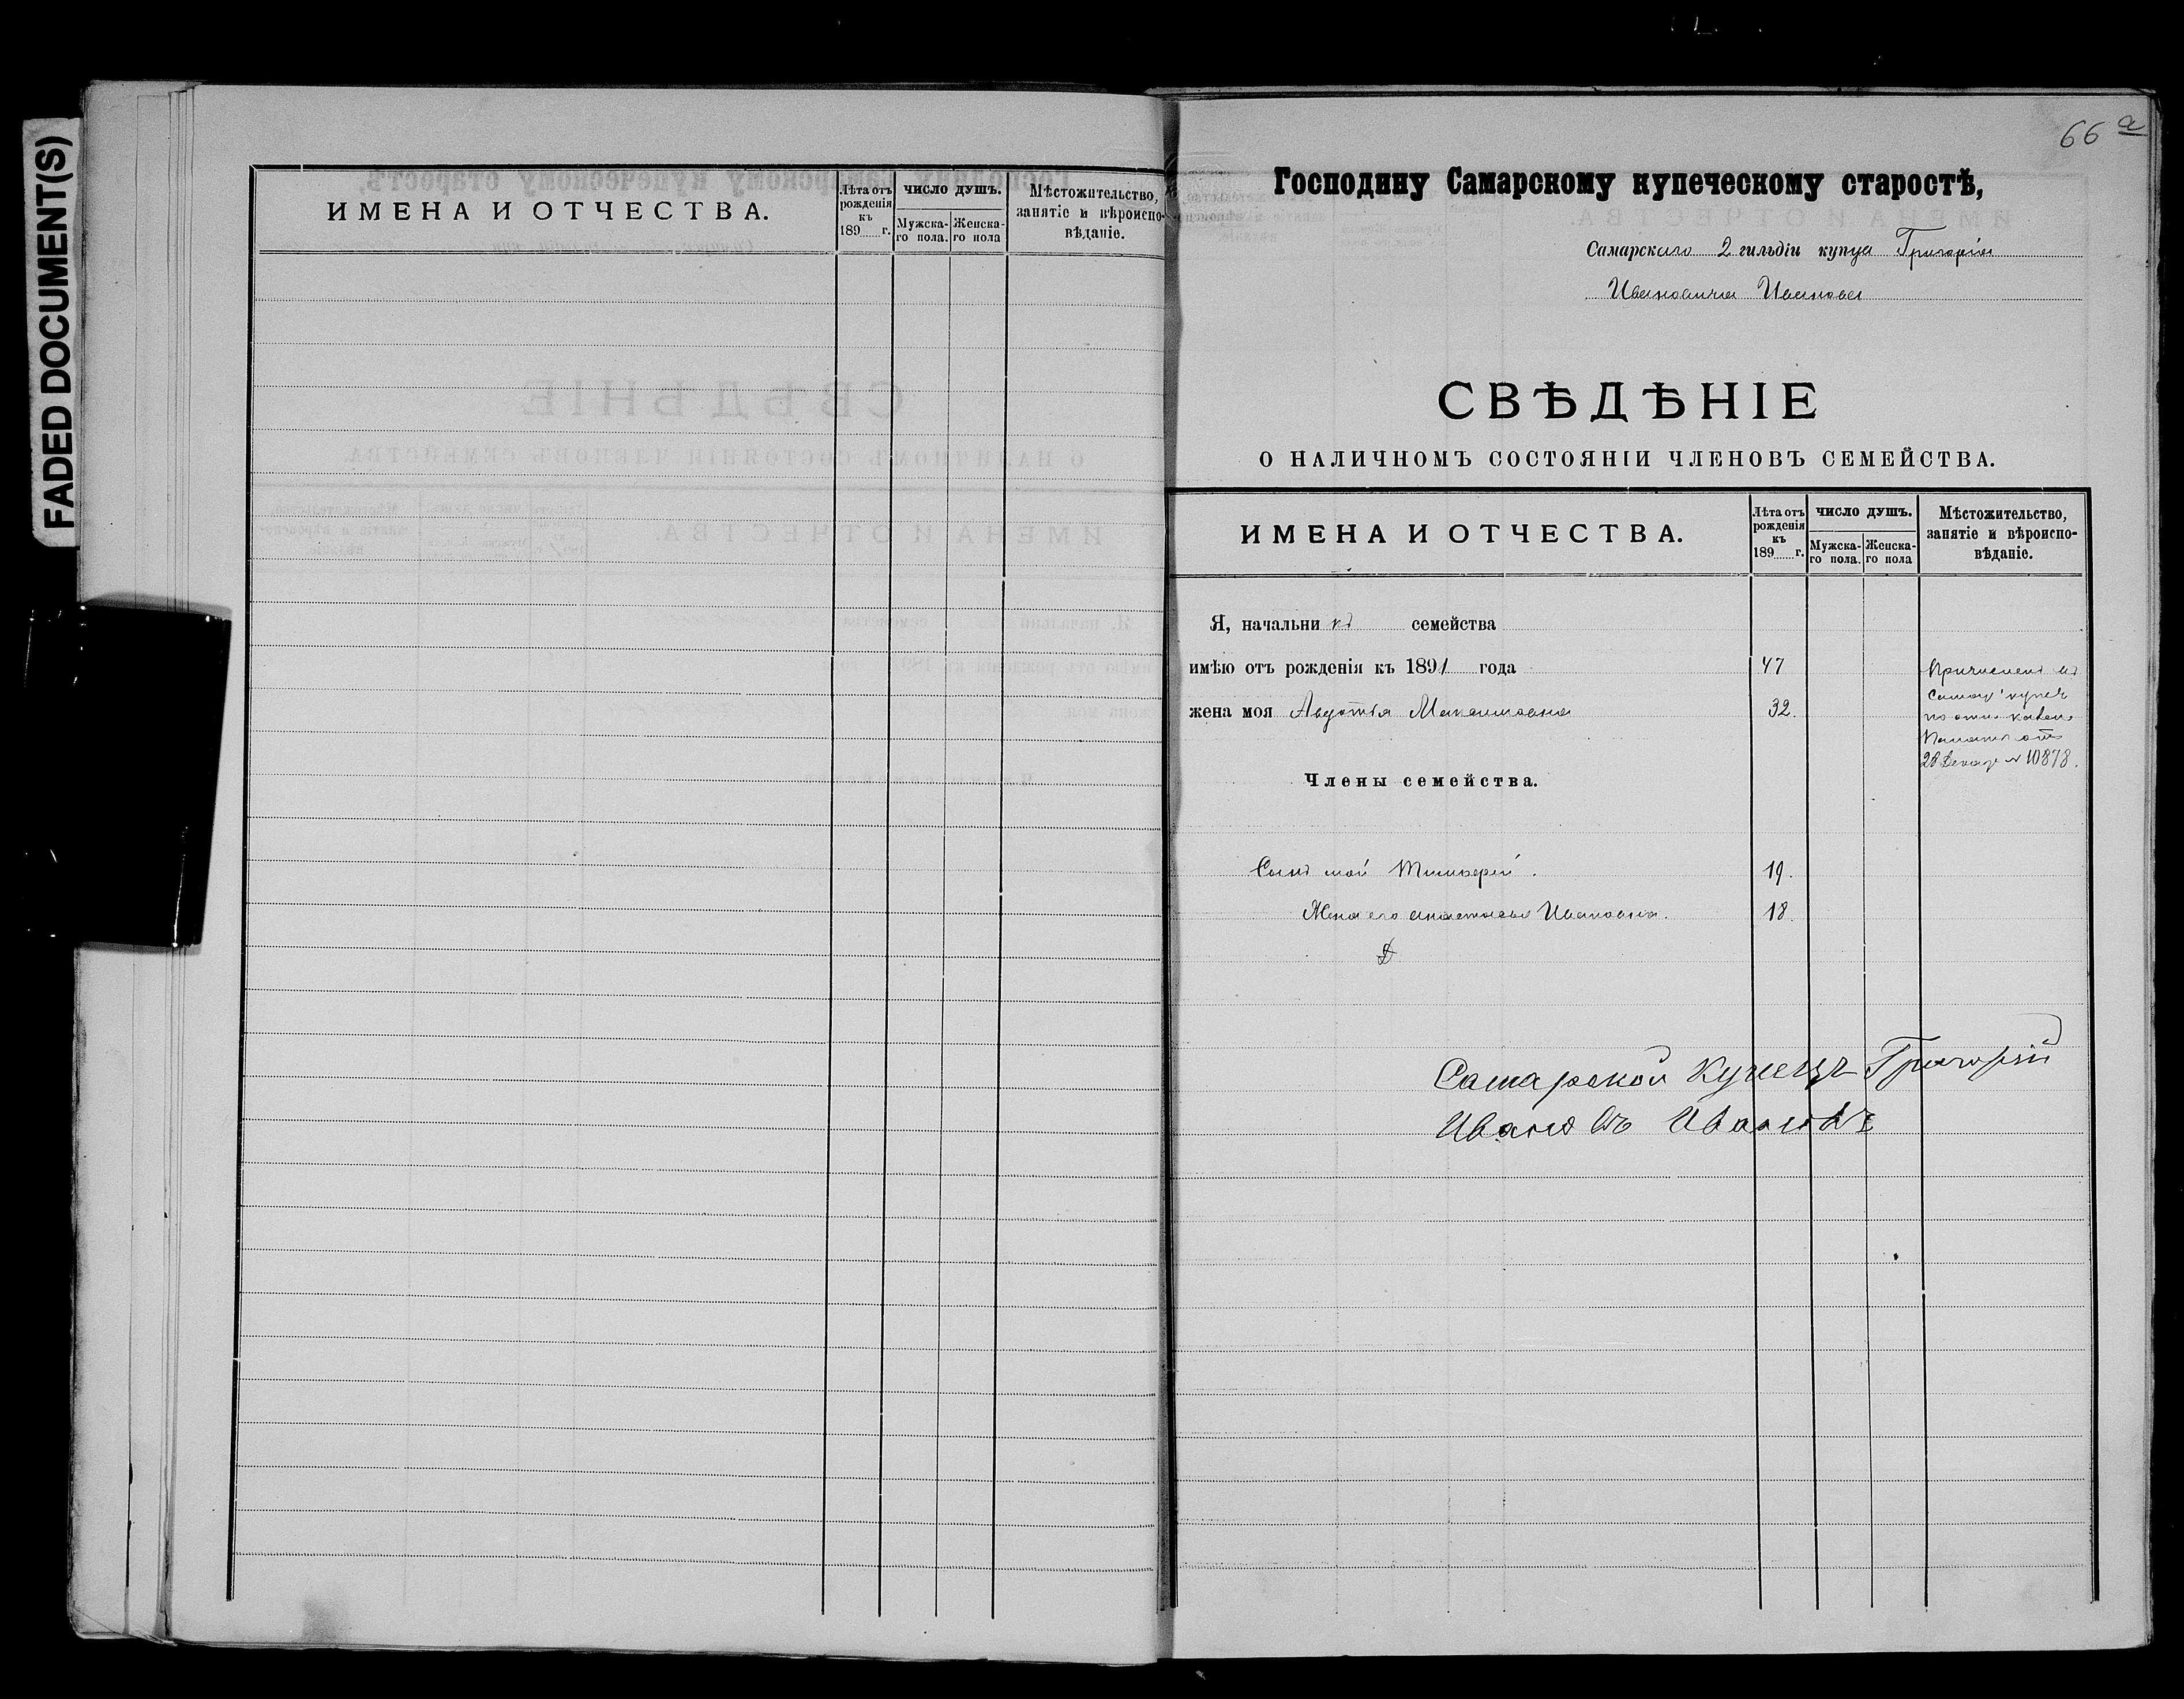 FADED DOCUMENT(S)
ИМЕНА И ОТЧЕСТВА.
Лѣта отъ рожденія къ 189 г.
ЧИСЛО ДУШЪ.
Мужска-го пола.
Женска-го пола
Мѣстожительство,
занятіе и вѣроиспо-
вѣданіе.
66 а
Господину Самарскому купеческому старостѣ,
Самарскаго 2 гильдіи купца Григорія
Ивановича Иванова
СВѢДѢНІЕ
О НАЛИЧНОМЪ СОСТОЯНІИ ЧЛЕНОВЪ СЕМЕЙСТВА.
ИМЕНА И ОТЧЕСТВА.
Лѣта отъ рожденія къ 189 г.
ЧИСЛО ДУШЪ.
Мужска-го пола.
Женска-го пола
Мѣстожительство,
занятіе и вѣроиспо-
вѣданіе.
Я, начальникъ семейства
имѣю отъ рожденія къ 1891 года 47
жена моя Авдотья Максимовна 32.
Причисленъ въ
Самар купеч
по
Палаты отъ
28 Декар № 10878.
Члены семейства.
Сынъ мой Тимоѳей. 19.
Жена его Анастасья Ивановна. 18.
Самарской Купецъ Григорій
Ивановъ Ивановъ